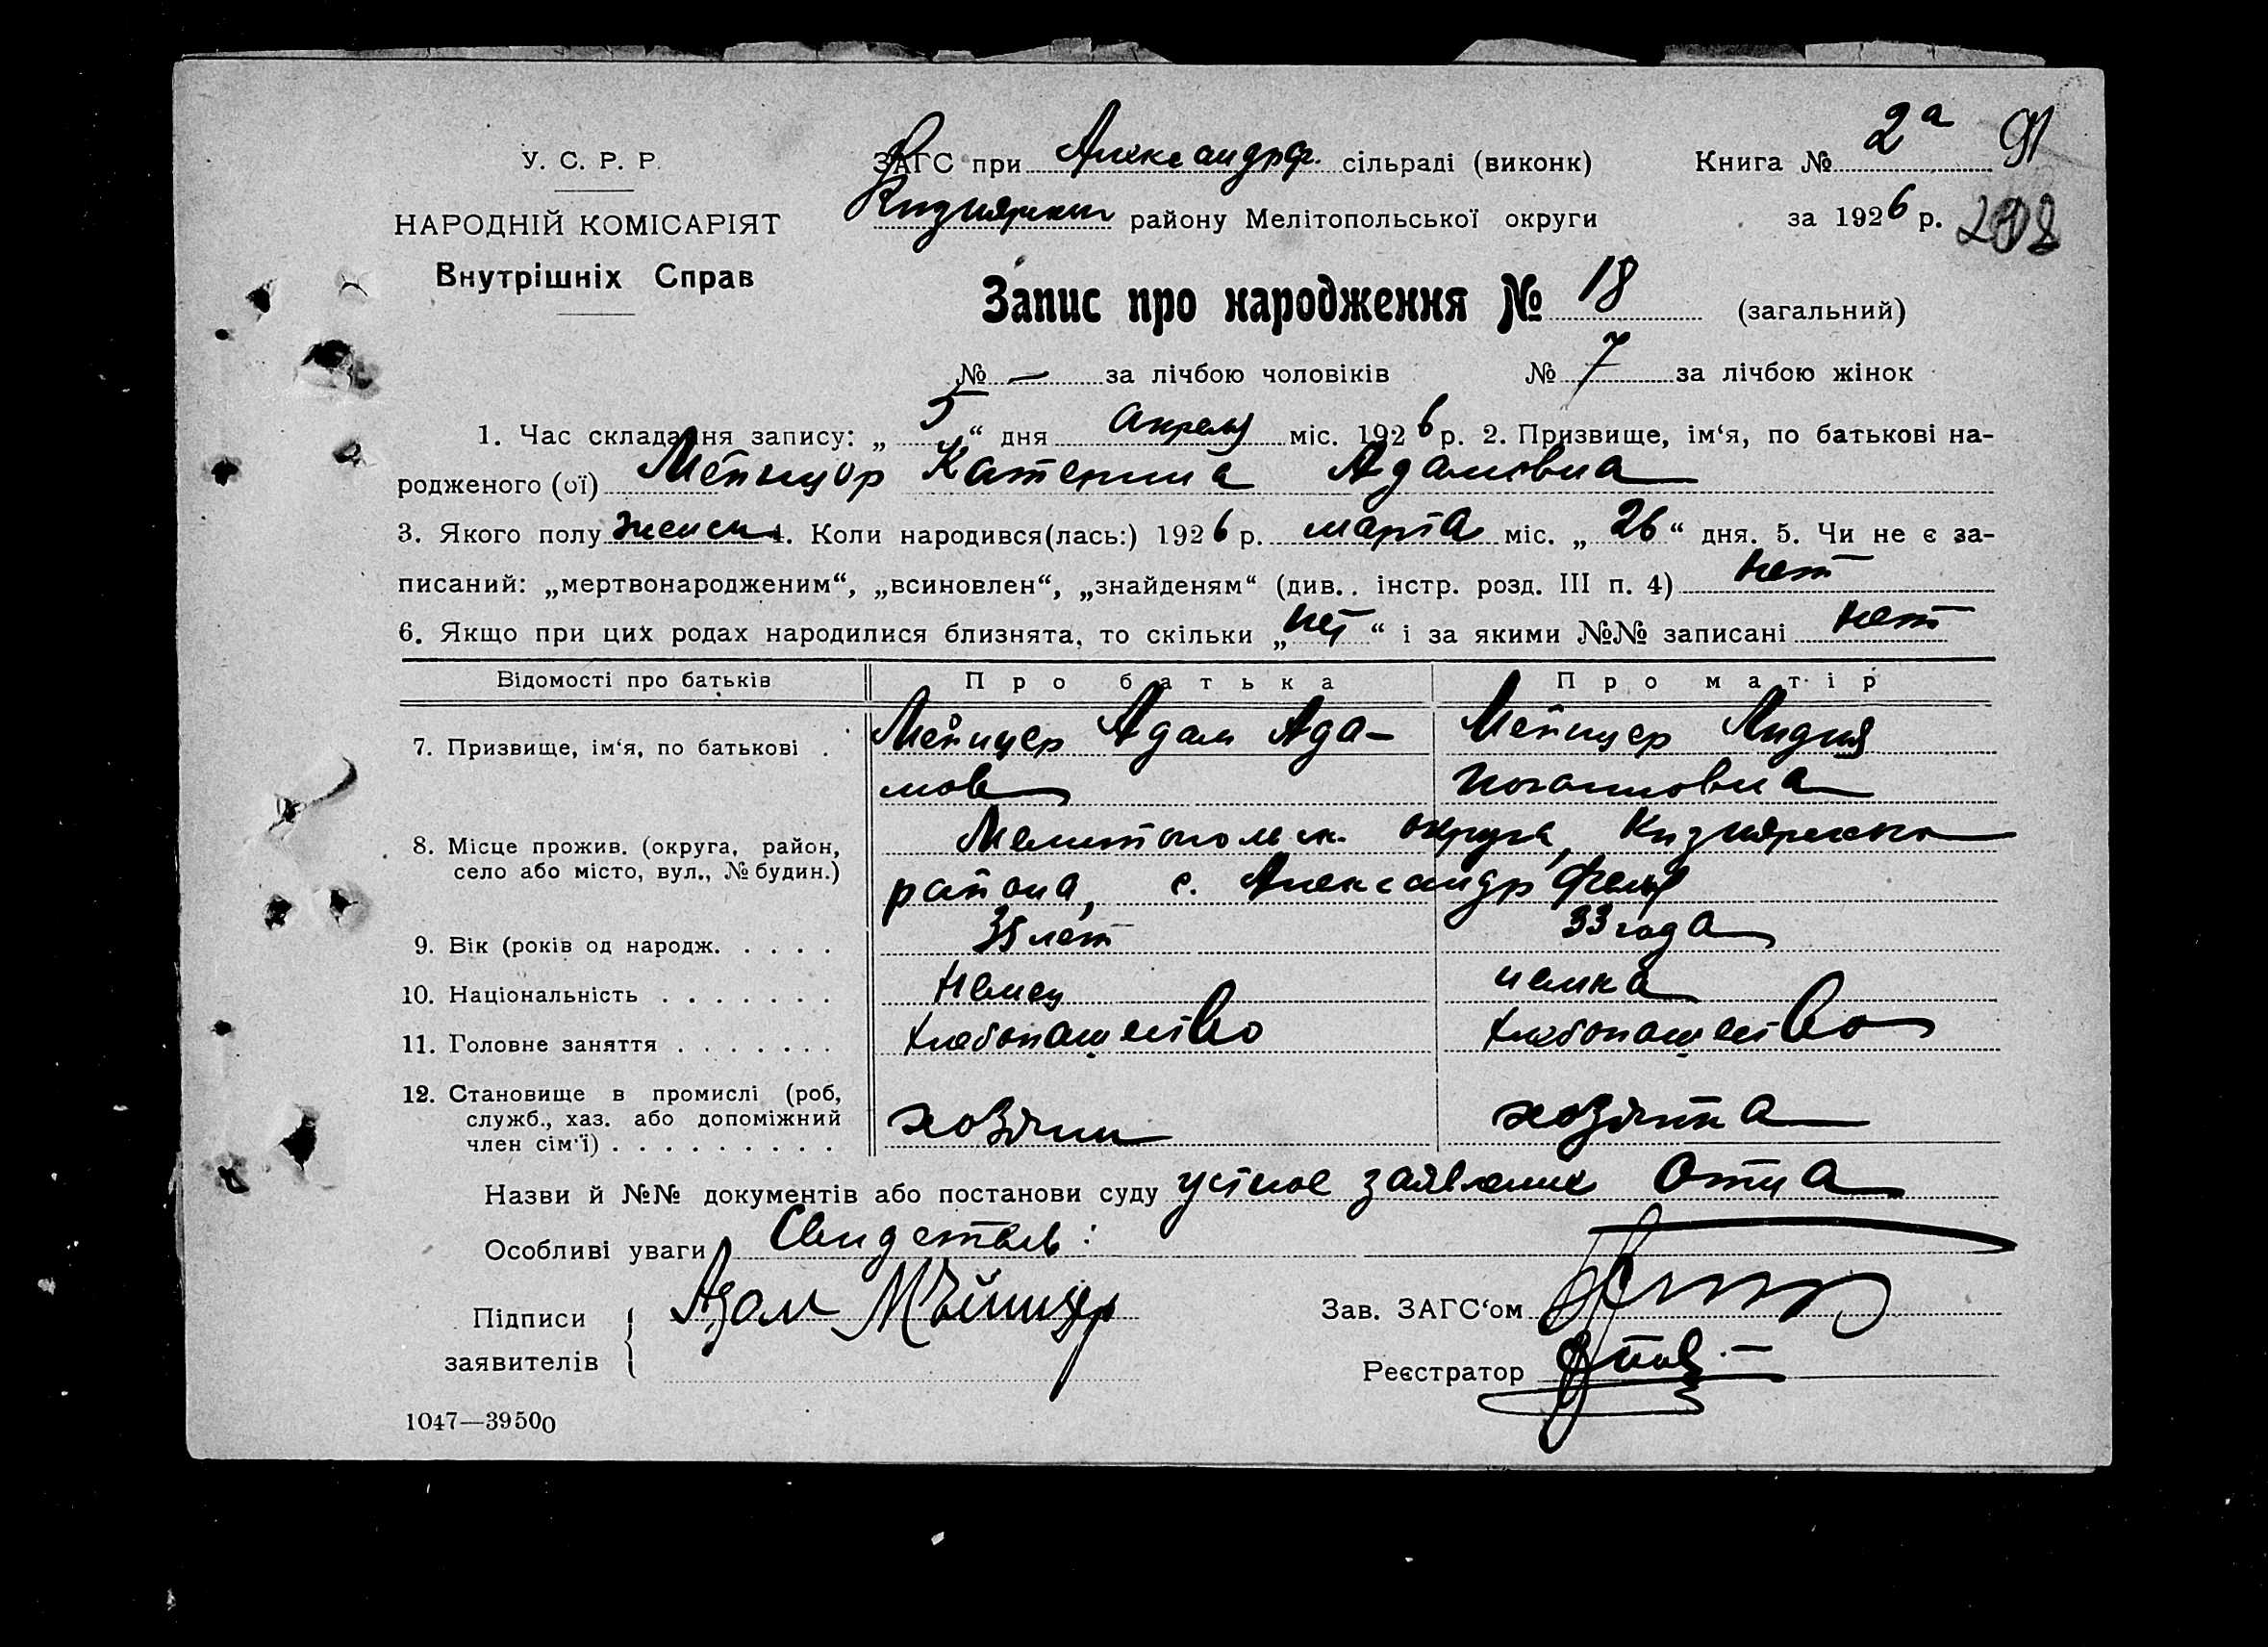 У. С. Р. Р.
НАРОДНІЙ КОМІСАРІЯТ
Внутрішніх Справ
ЗАГС при Александрф. сільраді (виконк)
Кизиярском району Мелітопольської округи
Книга № 2а 91
за 1926 р.
Запис про народження № 18 (загальний)
№ — за лічбою чоловіків № 7 за лічбою жінок
1. Час складання запису: „ 5 “ дня апреля міс. 1926 р. 2. Призвище, ім‘я, по батькові на-
родженого (ої) Мейнцер Катерина Адамовна
3. Якого полу женск 4. Коли народився(лась:) 1926 р. марта міс. „ 26 “ дня. 5. Чи не є за-
писаний: „мертвонародженим“, „всиновлен“, „знайденям“ (див.. інстр. розд. III п. 4) нет
6. Якщо при цих родах народилися близнята, то скільки „ нет “ і за якими №№ записані нет
Відомості про батьків Про батька Про матір
7. Призвище, ім‘я, по батькові . Мейнцер Адам Ада- Мейнцер Лидия
мов Иоганновна
8. Місце прожив. (округа, район, Мелитопольск. округа, Кизиярского
село або місто, вул., № будин.) района, с. Александрфельд
9. Вік (років од народж. . . . . 35 лет 33 года
10. Національність . . . . . . . Немец немка
11. Головне заняття . . . . . . . хлебопашество хлебопашество
12. Становище в промислі (роб,
служб., хаз. або допоміжний хозяин хозяйка
член сім‘ї) . . . . . . . . .
Назви й №№ документів або постанови суду устное заявление Отца
Особливі уваги Свидетель:
Підписи Адам Мейнцер Зав. ЗАГС‘ом
заявителів Реєстратор
1047—39500